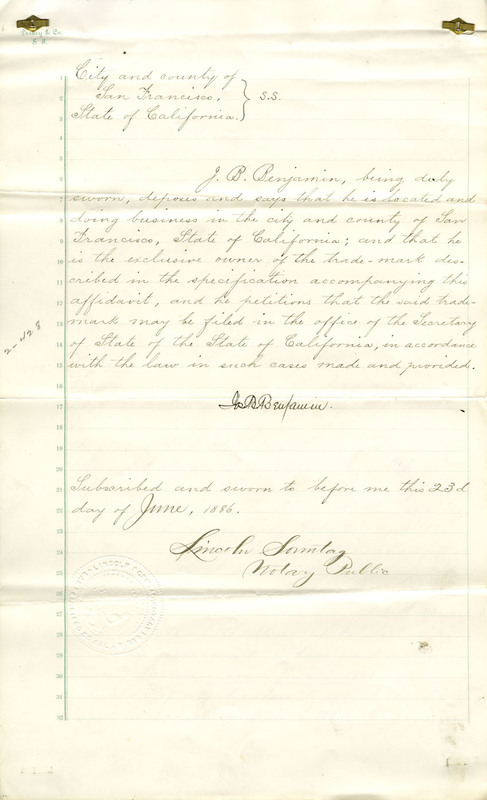 City and county of
San Francisco, } S.S.
State of California.
J. B. Benjamin, being duly
sworn, deposes and says that he is located and
doing business in the city and county of San
Francisco, State of California; and that he
is the exclusive owner of the trade-mark des-
cribed in the specification accompanying this
affidavit, and he petitions that the said trade-
mark may be filed in the office of the Secretary
of State of the State of California, in accordance
with the law in such cases made and provided.
J. B. Benjamin.
Subscribed and sworn to before me this 23d
day of June, 1886.
Lincoln Sonntag
Notary Public
2-428
1
2
3
4
5
6
7
8
9
10
11
12
13
14
15
16
17
18
19
20
21
22
23
24
25
26
27
28
29
30
31
32